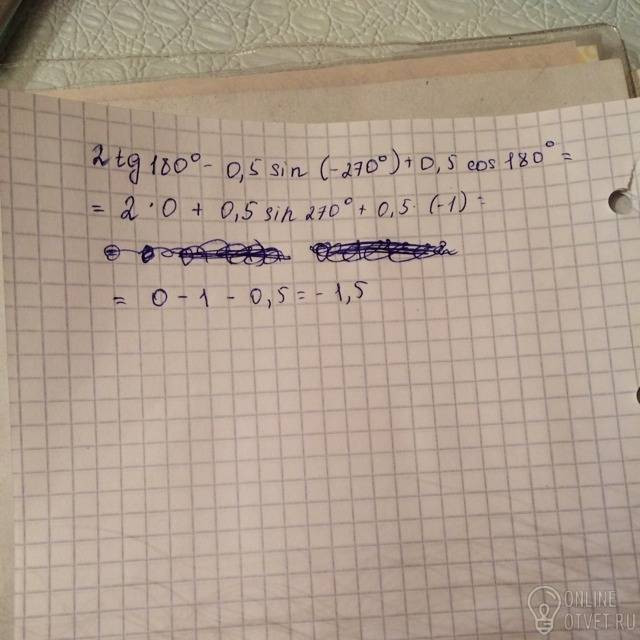 2 tg 180° - 0,5 sin (-270°) + 0,5 cos 180° =
= 2 · 0 + 0,5 sin 270° + 0,5 · (-1) =
= 0 - 1 - 0,5 = - 1,5
ONLINE
OTVET.RU